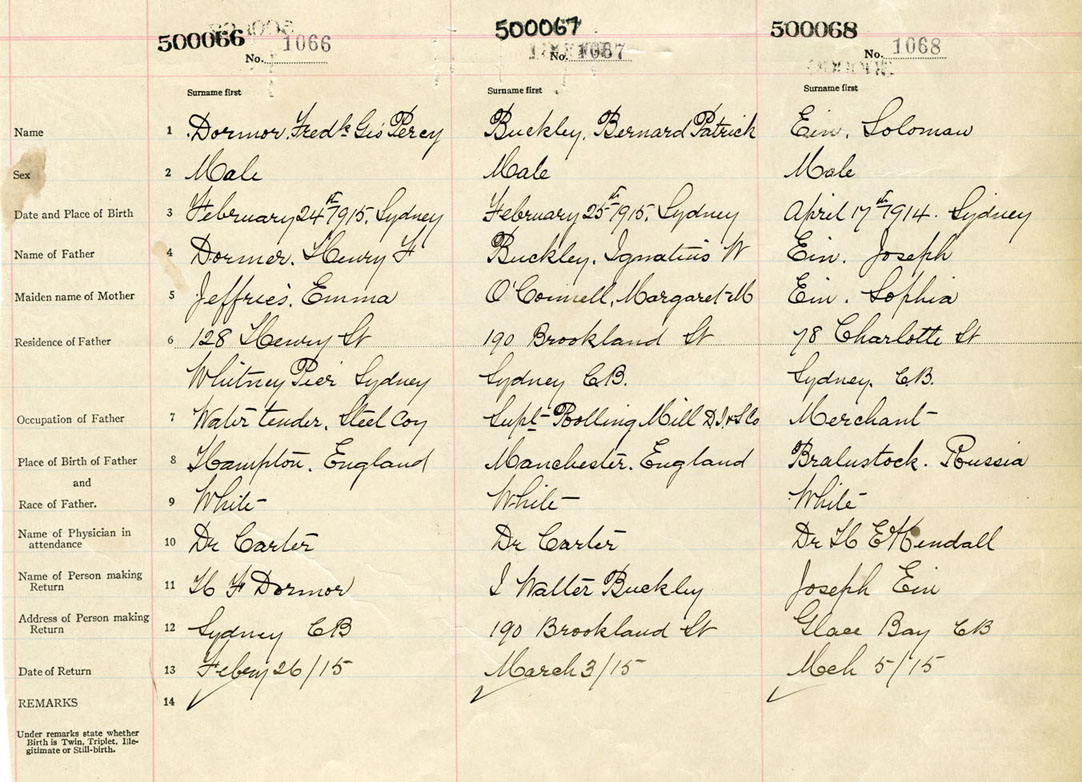 500066 500067 500068
No. 1066 No. 1067 No. 1068
Surname first Surname first Surname first
Name 1 Dormor, Fredk Geo Percy Buckley, Bernard Patrick Ein. Soloman
Sex 2 Male Male Male
Date and Place of Birth 3 February 24th 1915, Sydney February 25th 1915, Sydney April 17th 1914. Sydney
Name of Father 4 Dormer. Henry F Buckley, Ignatius W Ein. Joseph
Maiden name of Mother 5 Jeffries, Emma O'Connell, Margaret M Ein. Sophia
Residence of Father 6 128 Henry St 190 Brookland St 78 Charlotte St
Whitney Pier Sydney Sydney C.B. Sydney. C.B.
Occupation of Father 7 Water tender, Steel Coy Supt Rolling Mill D.I.&S.Co Merchant
Place of Birth of Father 8 Hampton, England Manchester. England Bralustock. Russia
and
Race of Father. 9 White White White
Name of Physician in
attendance 10 Dr Carter Dr Carter Dr H E Kendall
Name of Person making
Return 11 H F Dormor I Walter Buckley Joseph Ein
Address of Person making
Return 12 Sydney CB 190 Brookland St Glace Bay CB
Date of Return 13 Febry 26/15 March 3/15 Mch 5/15
REMARKS 14
Under remarks state whether
Birth is Twin, Triplet, Ille-
gitimate or Still-birth.